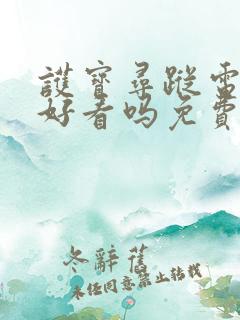 護寶尋蹤電
好看吗免費
冬辭舊
未经同意禁止转载